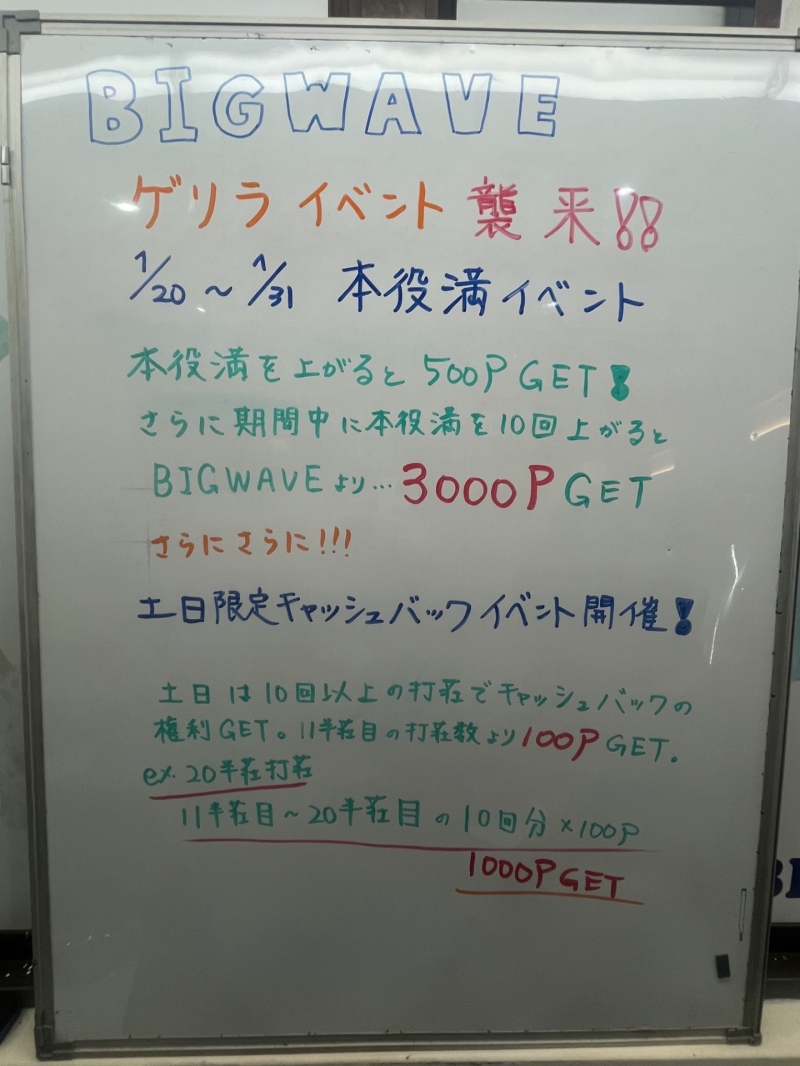 BIGWAVE
ゲリライベント 襲来!!
1/20~1/31 本役満イベント
本役満を上がると 500P GET!
さらに期間中に本役満を10回上がると
BIGWAVEより… 3000P GET
さらにさらに!!!
土日限定キャッシュバックイベント開催!
土日は10回以上の打荘でキャッシュバックの
権利GET。11半荘目の打荘数より100P GET.
ex. 20半荘打荘
11半荘目~20半荘目の10回分×100P
1000P GET